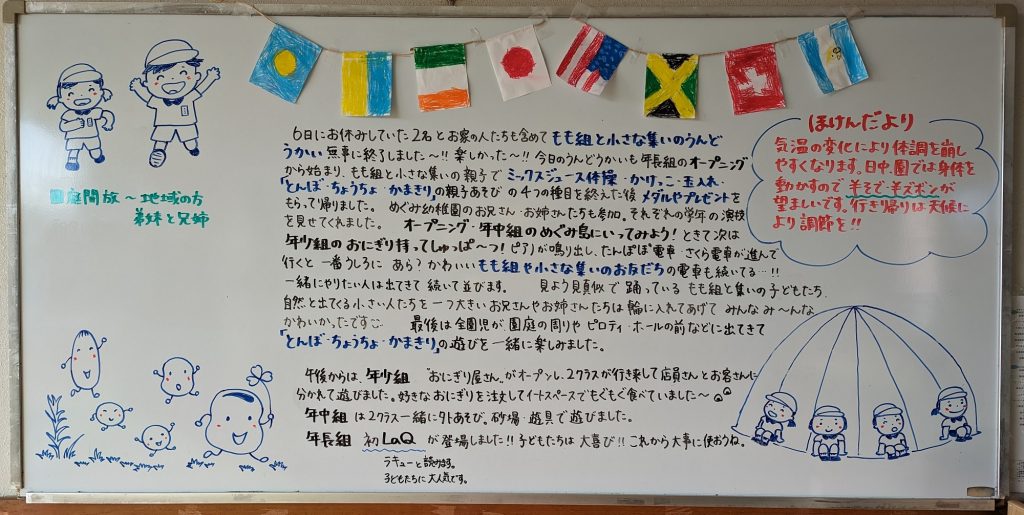 6日にお休みしていた2名とお家の人たちも含めてもも組と小さな集いのうんど
うかい無事に終了しました〜!!楽しかった〜!!今日のうんどうかいも年長組のオープニング
から始まり、もも組と小さな集いの親子でミックスジュース体操・かけっこ・玉入れ・
「とんぼ・ちょうちょ・かまきり」の親子あそびの4つの種目を終えた後メダルやプレゼントを
もらって帰りました。 めぐみ幼稚園のお兄さん・お姉さんたちも参加。それぞれの学年の演技
を見せてくれました。 オープニング・年中組のめぐみ島にいってみよう!ときて次は
年少組のおにぎり持ってしゅっぱ〜つ!ピアノが鳴り出し、たんぽぽ電車 さくら電車が進んで
行くと一番うしろに あら?かわいいもも組や小さな集いのお友だちの電車も続いてる…!!
一緒にやりたい人は出てきて続いて並びます。 見よう見真似で踊っているもも組と集いの子どもたち.
自然と出てくる小さい人たちを一つ大きいお兄さんやお姉さんたちは輪に入れてあげて みんなみ〜んな
かわいかったです 最後は全園児が園庭の周りや ピロティ・ホールの前などに出てきて
「とんぼ・ちょうちょ・かまきり」の遊びを一緒に楽しみました。
午後からは、年少組 "おにぎり屋さん"がオープンし、2クラスが行き来して店員さんとお客さんに
分かれて遊びました。好きなおにぎりを注文してイートスペースでもぐもぐ食べていました〜
年中組は2クラス一緒に外あそび。砂場・遊具で遊びました。
年長組 初LaQ が登場しました!!子どもたちは大喜び!!これから大事に使おうね。
ラキューと読みます。
子どもたちに大人気です。
園庭開放〜地域の方
弟妹と兄姉
ほけんだより
気温の変化により体調を崩し
やすくなります。日中、園では身体を
動かすので半そで・半ズボンが
望ましいです。行き帰りは天候に
より調節を!!